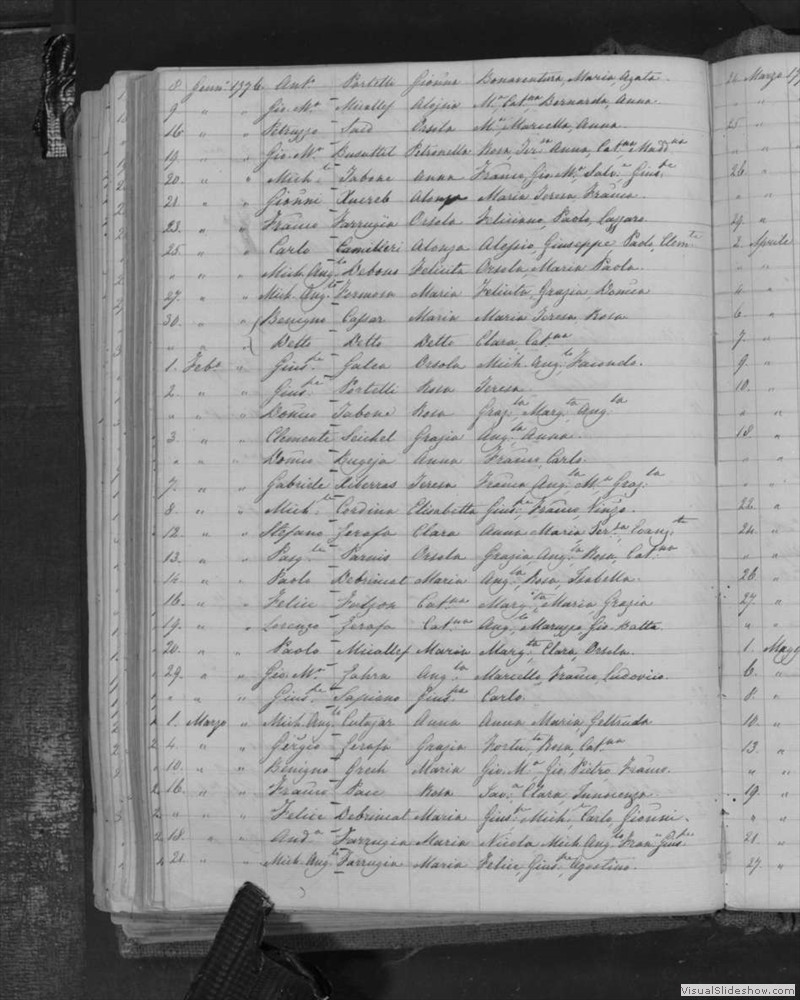 8. Genn: 1776 Ant.o Portelli Gionna Bonaventura, Maria, Agata.
9 " " Gio. M.a Micallef Aloisia M.a Cat.na Bernarda, Anna.
16 " " Petruzzo Said Orsola M.a Mariella, Anna.
19. " " Gio. M.a Busuttil Petronella Rosa, Ter.sa Anna, Cat.na Madd.na
20. " " Mich.le Tabone Anna Franco, Gio. M.a Salv.e Gius.e
21. " " Gionni Xuereb Alonza Maria Teresa Franca.
23. " " Franco Farrugia Orsola Feliciano, Paolo, Gaspare.
25. " " Carlo Camilleri Alonza Aloysio, Giuseppe Paolo, Clem.te
" " " Mich. Ang.lo Debono Felicita Orsola, Maria Paola.
27. " " Mich. Ang.lo Formosa Maria Felicita, Grazia, Domca
30. " " Benigno Cassar Maria Maria Teresa, Rosa
" " " Detto Detto Detto Clara, Cat.na
1. Feb.o " Gius.e Galea Orsola Mich. Ang.lo Facondo.
2. " " Gius.e Portelli Rosa Teresa
" " " Domco Tabone Rosa Graz.la Marg.ta Ang.la
3. " " Clemente Seichel Grazia Ang.la Anna.
" " " Domco Bugeja Anna Franco, Carlo.
7. " " Gabriele Xiberras Teresa Franca Ang.la M.a Graz.la
8 " " Mich.le Cordina Elisabetta Gius.e, Franco, Vinzo.
12. " " Stefano Zerafa Clara Anna Maria, Ter.sa Evang.ta
13. " " Pasq.le Parnis Orsola Grazia, Ang.la Rosa, Cat.na
14 " " Paolo Debrincat Maria Ang.la, Rosa, Isabella.
16. " " Felice Cat.na Marg.ta, Maria Grazia
19. " " Lorenzo Zerafa Cat.na Ang.lo Maruzzo, Gio. Batta.
20. " " Paolo Micallef Maria Marg.ta, Clara, Orsola.
29. " " Gio. M.a Zahra Ang.la Marcello, Franco, Ludovico.
" " " Gius.e Sapiano Gius.pa Carlo.
1. Marzo " Mich. Ang.lo Cutajar Anna Anna Maria, Geltruda
4. " " Gergio Zerafa Grazia Rosa, Cat.na
10. " " Benigno Grech Maria Gio. M.a Gio. Pietro, Franco.
16 " " Franco Pace Rosa Sav.a Clara, Innocenza
" " " Felice Debrincat Maria Gius.e Mich.e Carlo Gionni.
18. " " And.a Farrugia Maria Nicola Mich. Ang.lo Fran.co Gius.e
21. " " Mich. Ang.lo Farrugia Maria Felice, Gius.e, Agostino.
24 Marzo 17
" "
25 "
" "
26 "
26. "
" "
29. "
2. Aprile
" "
" "
6. "
7. "
9. "
10. "
" "
18. "
" "
" "
22. "
24. "
" "
26. "
27 "
" "
1. Magg
6. "
8. "
10. "
13. "
" "
19. "
" "
21. "
27. "
VisualSlideshow.com